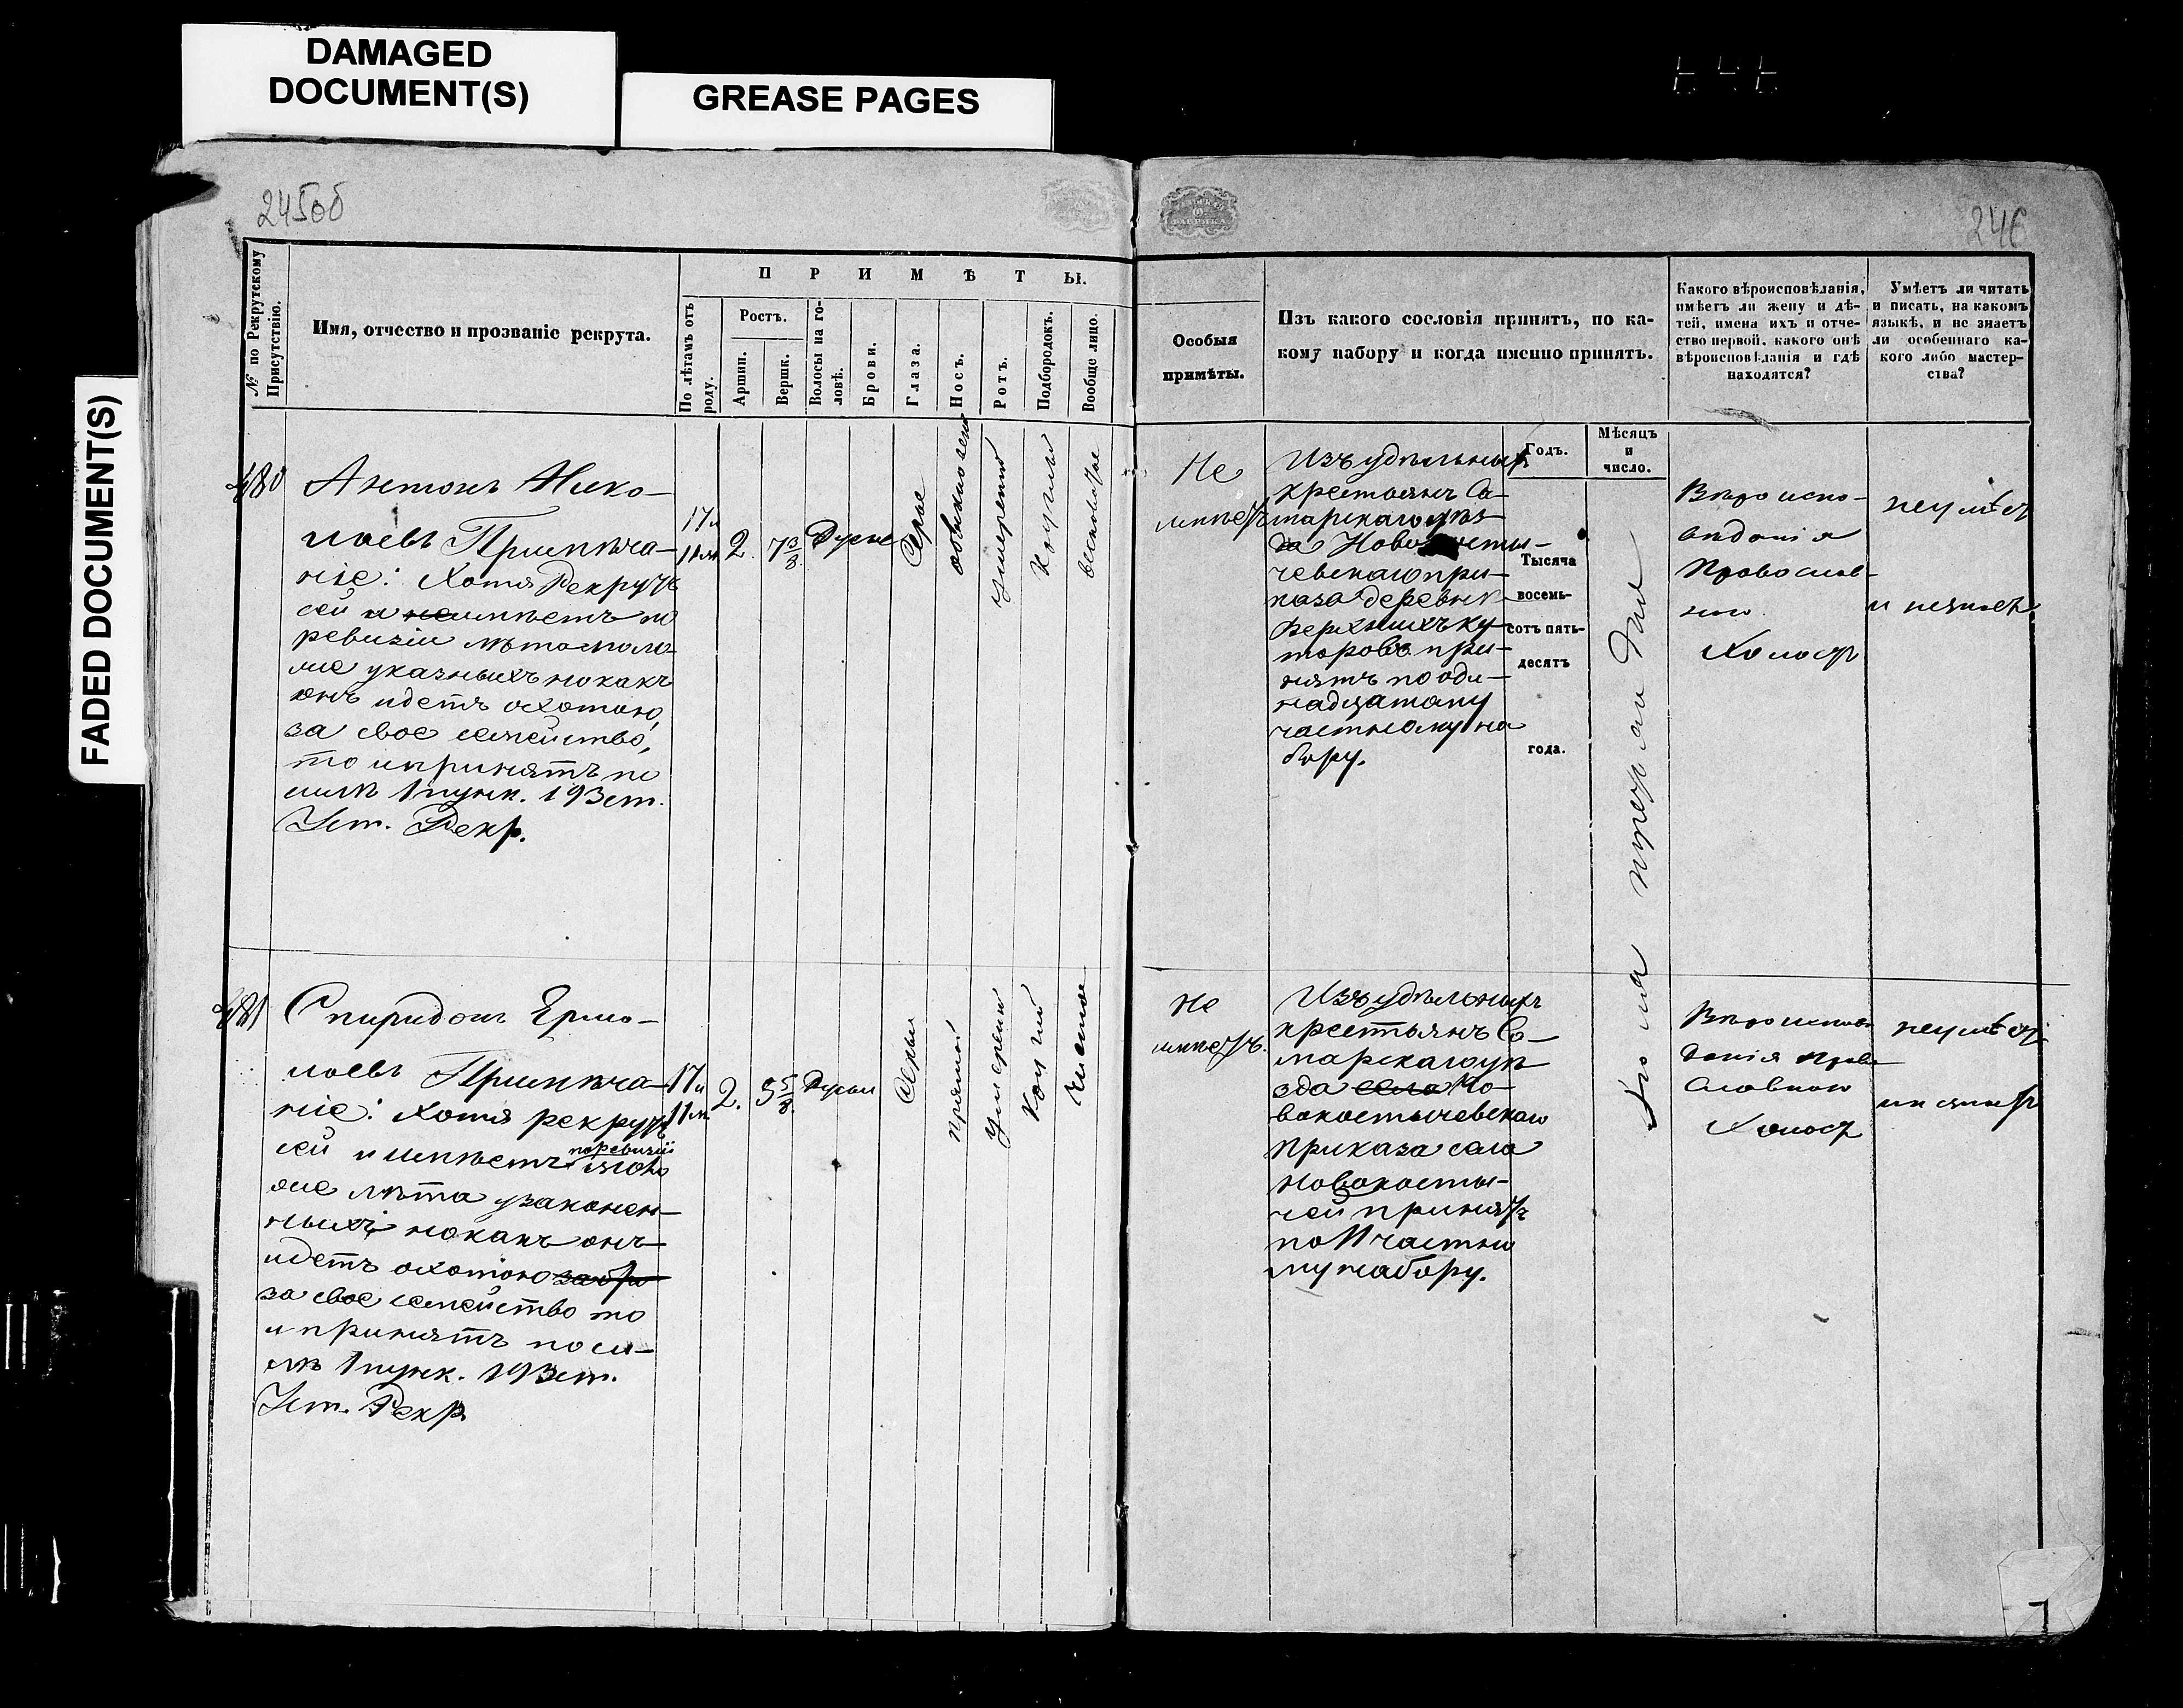 DAMAGED
DOCUMENT(S)
GREASE PAGES
FADED DOCUMENT(S)
245об
246
№ по Рекрутскому
Присутствію.
Имя, отчество и прозваніе рекрута.
ПРИМѢТЫ.
По лѣтамъ отъ
роду.
Ростъ.
Аршин.
Вершк.
Волосы на го-
ловѣ.
Брови.
Глаза.
Носъ.
Ротъ.
Подбородокъ.
Вообще лицо.
Особыя
примѣты.
Изъ какого сословія принятъ, по ка-
кому набору и когда именно принятъ.
Какого вѣроисповѣданія,
имѣетъ ли жену и дѣ-
тей, имена ихъ и отче-
ство первой, какого онѣ
вѣроисповѣданія и гдѣ
находятся?
Умѣетъ ли читать
и писать, на какомъ
языкѣ, и не знаетъ
ли особеннаго ка-
кого либо мастер-
ства?
Годъ.
Мѣсяцъ
и
число.
Тысяча
восемь-
сотъ пять-
десятъ
года.
480
Антонъ Нико-
лаевъ Примѣча-
ніе: Хотя Рекрутъ
сей и не имѣетъ по
ревизіи лѣта моло-
же указныхъ но какъ
онъ идетъ охотою
за свое семейство,
то и принятъ по
силѣ 1 пунк. 193 ст.
Уст. Рекр.
17 л
11 м
2
7 3/8
Русые
Серые
обыкновен
умеренный
Круглый
весноватое
Не
имѣетъ
Изъ удѣльныхъ
крестьянъ Са-
марскаго уѣз-
да Новокосты-
чевскаго при-
каза деревни
Верхнихъ ку-
торовъ при-
нятъ по оди-
надцатому
частному на
бору.
дня
Вѣроиспо-
ведонія
Православ-
ного
Холостъ
неумѣетъ
и незнаетъ
481
Спиридонъ Ермо-
лаевъ Примѣча-
ніе: Хотя рекрутъ
сей и имѣетъ по ревизіи моло
же лѣта узаконен-
ныхъ но какъ онъ
идетъ охотою
за свое семейство то
и принятъ по си-
лѣ 1 пунк. 193 ст.
Уст. Рекр
17 л
11 м
2.
5 5/8
Русыи
Серыи
прямой
умереный
Круглый
чистое
Не
имѣетъ.
Изъ удѣльныхъ
крестьянъ Са-
марскаго уѣ-
зда села Но-
вокостычевскаго
приказа села
Новокосты-
чей принятъ
по 11 частно
му набору.
Вѣроисповѣ
данія Право
славнаго
Холостъ
неумѣетъ
и незнаетъ